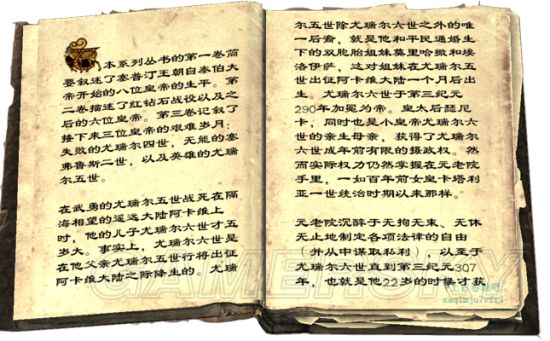 本系列丛书的第一卷简
要叙述了塞普汀王朝自泰伯大
帝开始的八位皇帝的生平。第
二卷描述了红钻石战役以及之
后的六位皇帝。第三卷记叙了
接下来三位皇帝的艰难岁月：
失败的尤瑞尔四世，无能的塞
弗鲁斯二世，以及英雄的尤瑞
尔五世。
在武勇的尤瑞尔五世战死在隔
海相望的遥远大陆阿卡维上
时，他的儿子尤瑞尔六世才五
岁大。事实上，尤瑞尔六世是
在他父亲尤瑞尔五世行将出征
阿卡维大陆之际降生的。尤瑞
尔五世除尤瑞尔六世之外的唯
一后裔，就是他和平民通婚生
下的双胞胎姐妹莫里哈撒和埃
洛伊萨，这对姐妹在尤瑞尔五
世出征阿卡维大陆一个月后出
生。尤瑞尔六世于第三纪元
290年加冕为帝。皇太后瑟尼
卡，同时也是小皇帝尤瑞尔六
世的亲生母亲，获得了尤瑞尔
六世成年前有限的摄政权。然
而实际权力仍然掌握在元老院
手里，一如百年前女皇卡塔利
亚一世统治时期以来那样。
元老院沉醉于无拘无束、无休
无止地制定各项法律的自由
（并从中谋取私利），以至于
尤瑞尔六世直到第三纪元307
年，也就是他22岁的时候才获
GAMERSKY